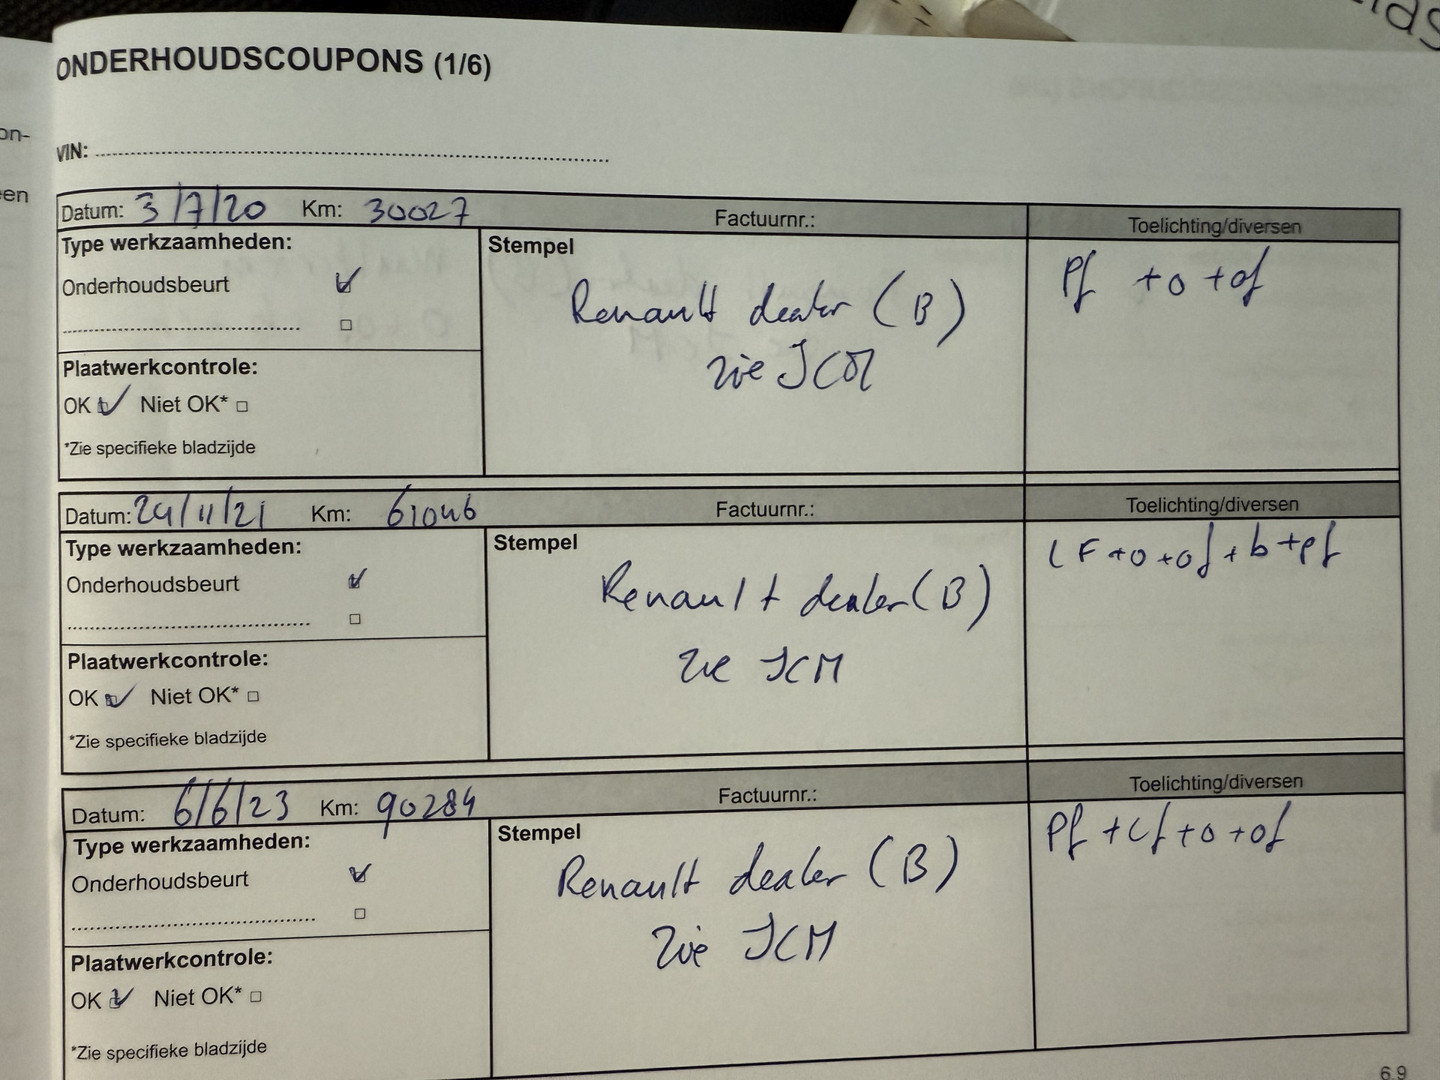 ONDERHOUDSCOUPONS (1/6)
VIN:
Datum: 3/7/20 Km: 30027 Factuurnr.: Toelichting/diversen
Type werkzaamheden:
Stempel
Pf +o +of
Onderhoudsbeurt
Renault dealer (B)
zie ICM
Plaatwerkcontrole:
OK Niet OK*
*Zie specifieke bladzijde
Datum: 24/11/21 Km: 61046 Factuurnr.: Toelichting/diversen
Type werkzaamheden:
Stempel
LF +o +of + b +pf
Onderhoudsbeurt
Renault dealer (B)
zie ICM
Plaatwerkcontrole:
OK Niet OK*
*Zie specifieke bladzijde
Datum: 6/6/23 Km: 90284 Factuurnr.: Toelichting/diversen
Type werkzaamheden:
Stempel
Pf +Lf +o +of
Onderhoudsbeurt
Renault dealer (B)
Zie ICM
Plaatwerkcontrole:
OK Niet OK*
*Zie specifieke bladzijde
6.9